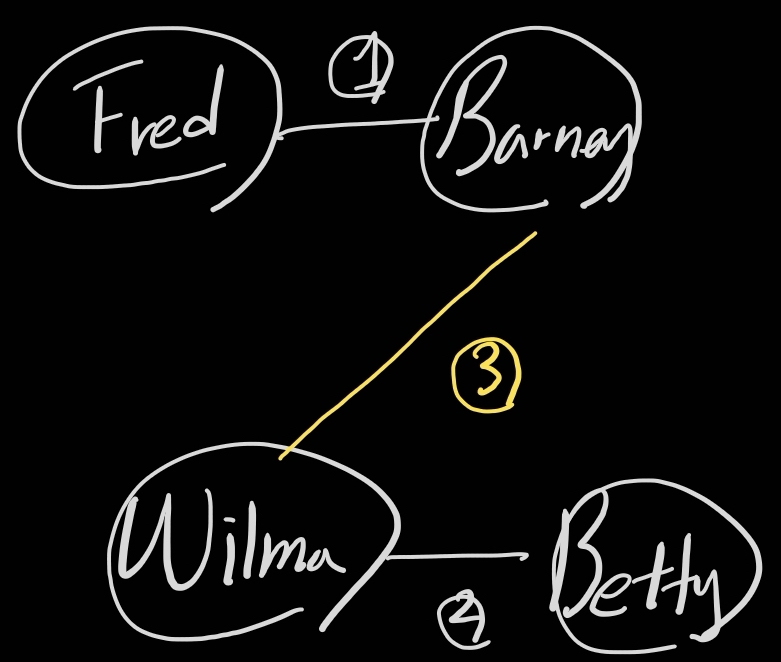 1
Fred
Barney
3
Wilma
Betty
2